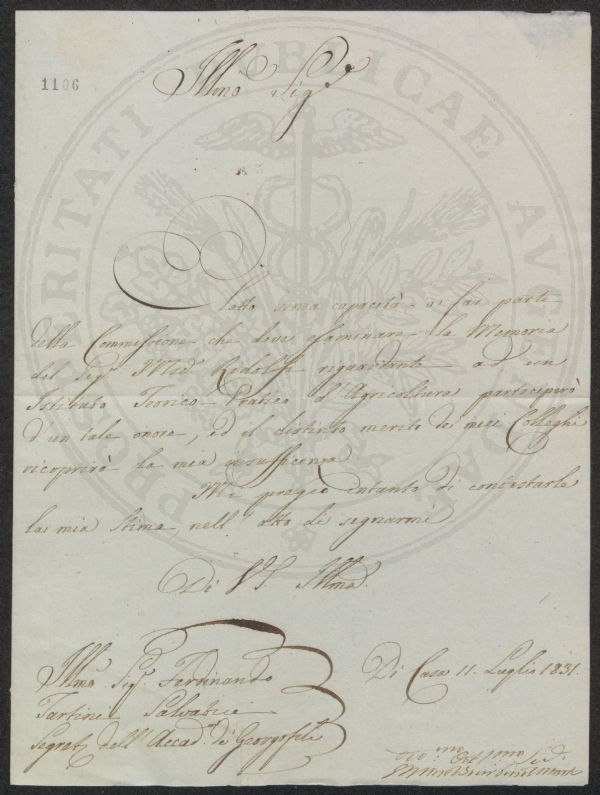 1106
Illmo Sigre
Eletto senza capacità a far parte
della Commissione che deve esaminare la Memoria
del Sigr Ridolfi riguardante ad un
Istituto Teorico Pratico d'Agricoltura parteciperò
d'un tale onore, ed il distinto merito de miei Colleghi
ricoprirà la mia insufficenza
Mi pregio intanto di contestarle
la mia stima nell'atto di segnarmi
Di VS Illma
Illmo Sigr Ferdinando
Di Casa 11. Luglio 1831.
Tartini Salvatici
Segret dell'Accad de Georgofili
PROSPERITATI PUBLICAE AUGENDAE